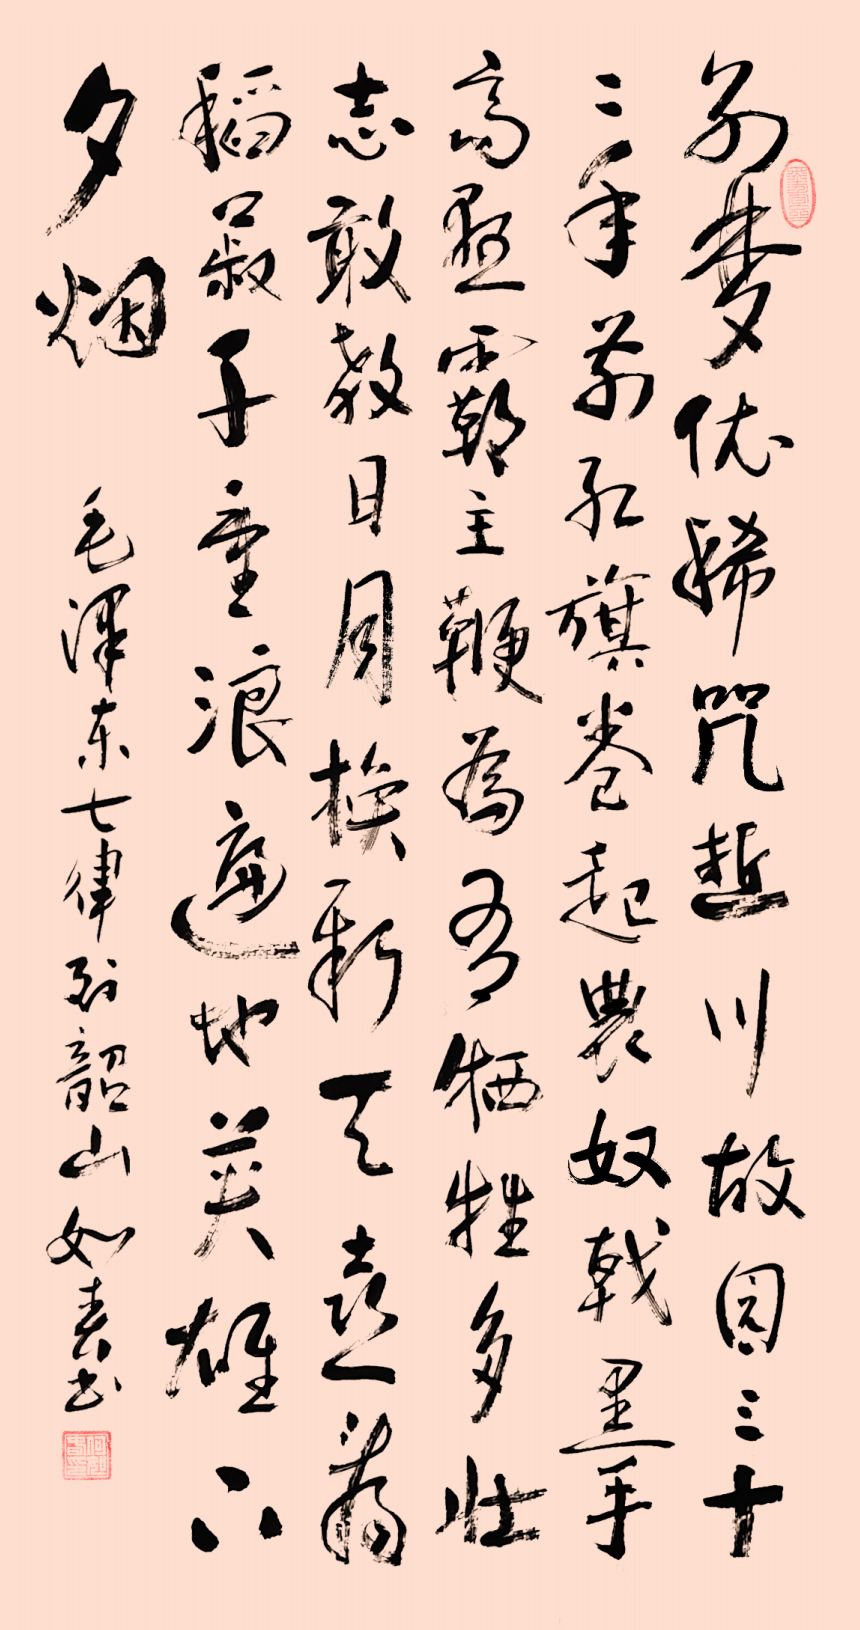 别梦依稀咒逝川故园三十
二年前红旗卷起農奴戟黑手
高悬霸主鞭為有牺牲多壮
志敢教日月换新天喜看
稻菽千重浪遍地英雄下
夕烟
毛泽东七律到韶山如春书